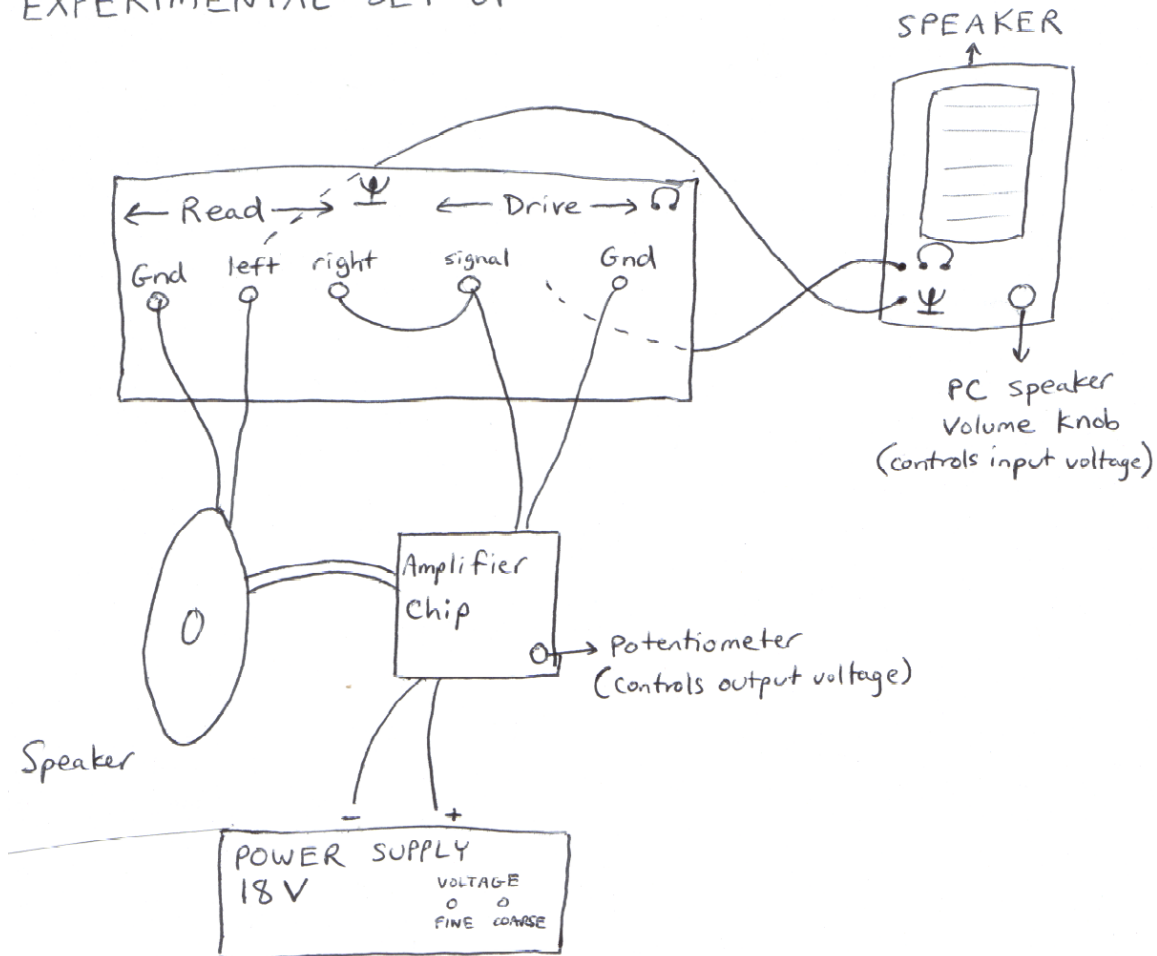 EXPERIMENTAL SET UP
SPEAKER
← Read → ← Drive →
Gnd left right signal Gnd
PC speaker
Volume knob
(controls input voltage)
Amplifier
Chip
Potentiometer
(controls output voltage)
Speaker
- +
POWER SUPPLY
18 V
VOLTAGE
FINE COARSE